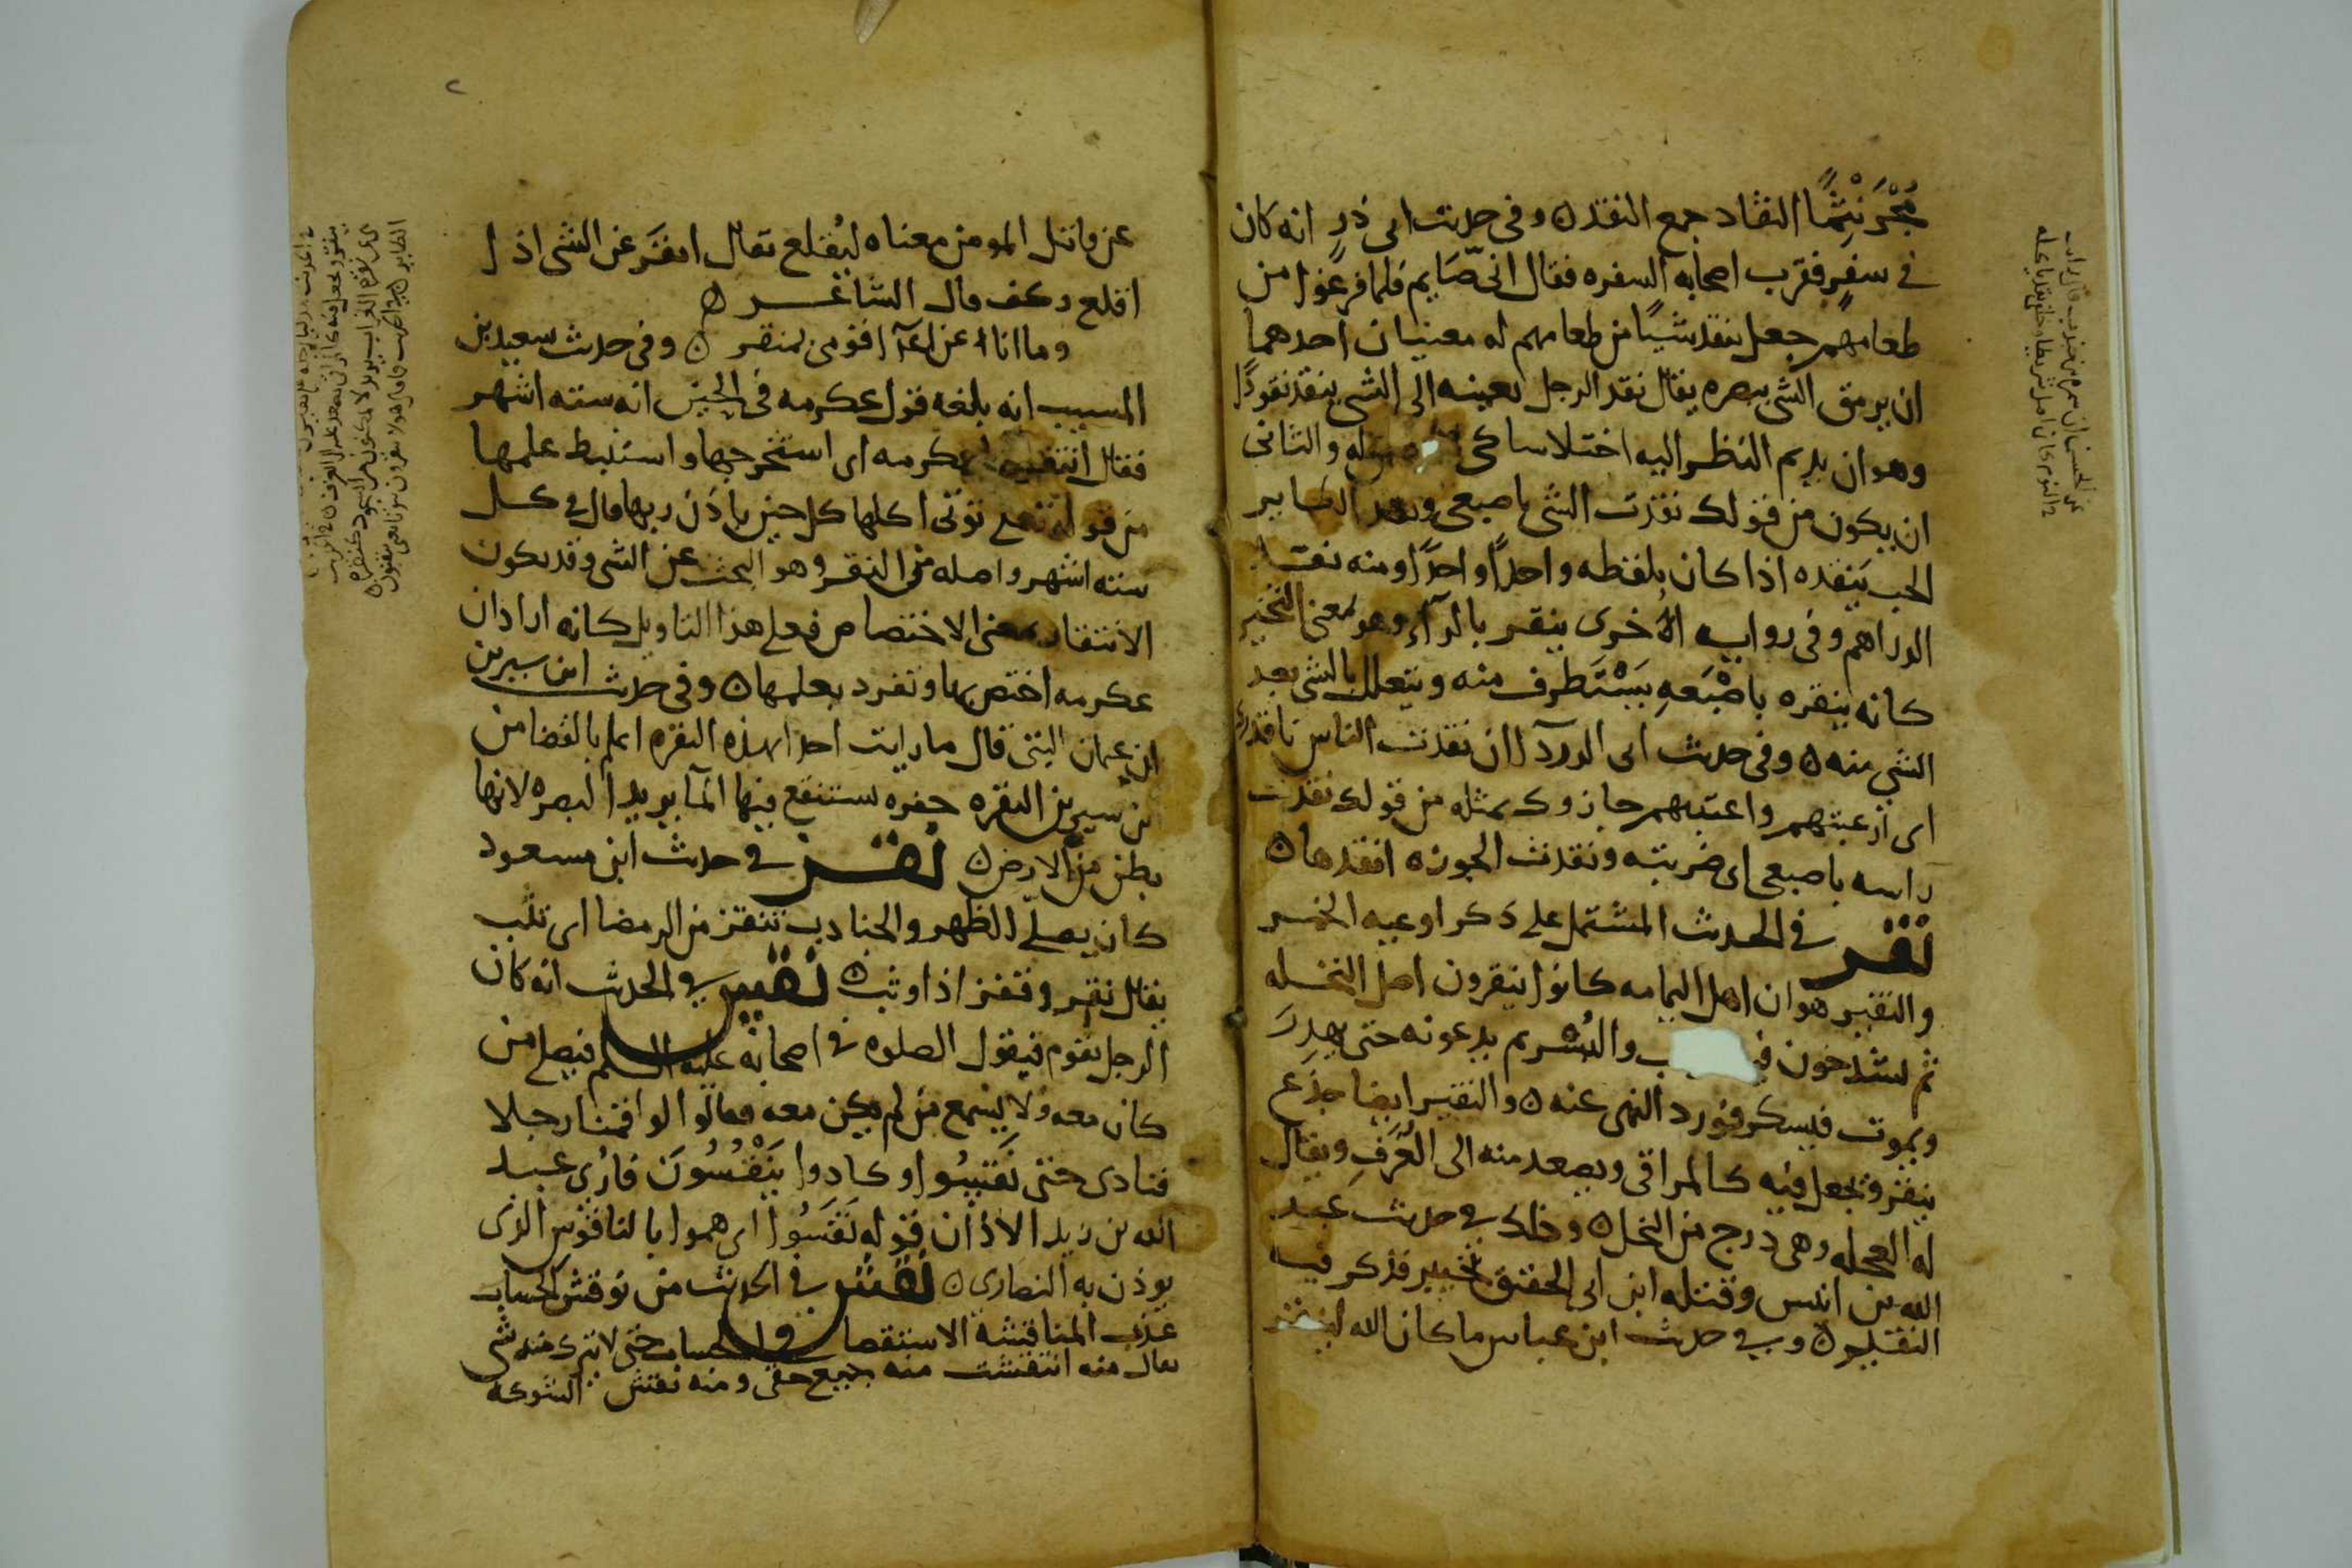 مُجْرَنْثِمًا النقاد جمع النقد ن وفى حديث ابى ذر انه كان
فى سفر فقرب اصحابه السفره فقال انى صَايم فلما فرغوا من
طعامهم جعل ينقد شيئا من طعامهم له معنيان احدهما
ان يرمق الشى ببصره يقال نقد الرجل بعينه الى الشى ينقد نقودًا
وهو ان يديم النظر اليه اختلاسا كى والثانى
ان يكون من قولك نقدت الشى باصبعى ونقد الطاير
الحب ينقده اذا كان يلقطه واحدًا واحدًا ومنه نقد
الدراهم وفى روايه اخرى ينقر بالرآء وهو بمعنى
كانه ينقره باصْبَعهِ يَسْتَطرف منه ويتعلل بالشى بعد
الشى منه ن وفى حديث ابى الدردآ ان نقدت الناس ناقدوك
اى ان عبتهم واعتبتهم جازوك بمثله من قولك نقدت
راسه باصبعى اى ضربته ونقدت الجوزه انقدها ن
نقر فى الحديث المشتمل على ذكر اوعيه الخمر
والنقير هو ان اهل اليمامه كانوا ينقرون اصل النخله
ثم يشدخون والبُسْر ثم يدعونه حتى يهدِرَ
ويموت فيسكر فورد النهى عنه ن والنقير ايضا جذع
ينقر ويجعل فيه كالمراقى ويصعد منه الى الغُرَفِ ويقال
له العجله وهى درج من النخل ن وذلك فى حديث عبد
الله بن انيس وقتله ابن ابى الحقيق بخيبر فذكر فيه
النقير ن وفى حديث ابن عباس ما كان الله لينقر
عن قاتل المومن معناه ليُقلع يقال انقَرَ عن الشى اذا
اقلع وكف قال الشاعر ن
وما انا عن اعدآ قومى بمنقر ن وفى حديث سعيد بن
المسيب انه بلغه قول عكرمه فى الحين انه سته اشهر
فقال انتقرها عكرمه اى استخرجها واستنبط علمها
من قوله تعلى توتى اكلها كل حين باذن ربها قال فى كل
سته اشهر واصله من النقر وهو البحث عن الشى وقد يكون
الانتقار بمعنى الاختصاص فعلى هذا التاويل كانه اراد ان
عكرمه اختص بها وتفرد بعلمها ن وفى حديث ابن سيرين
ان عثمان البتى قال ما رايت احدا بهذه النقره اعلم بالقضا من
بن سيرين النقره حفره يستنقع فيها المآ يريد البصره لانها
بطن من الارض ن نقز فى حديث ابن مسعود
كان يصلى الظهر والجنادب تنقز من الرمضا اى تثب
يقال نقز وقفز اذا وثب ن نقس فى الحديث انه كان
الرجل يقوم فيقول الصلوه فى اصحابه عليه السلم فيصلى من
كان معه ولا يسمع من لم يكن معه فقالوا لو اقمنا رجلا
فنادى حتى نَقَسُوا او كادوا يَنْقُسُونَ فاُرى عبد
الله بن زيد الاذان قوله نَقَسُوا اى هموا بالناقوس الذى
يوذن به النصارى ن نقش فى الحديث من نوقش الحساب
عذب المناقشه الاستقصا فى الحساب حتى لا يترك منه شى
يقال منه انتقشت منه جميع حقى ومنه نقش الشوكه